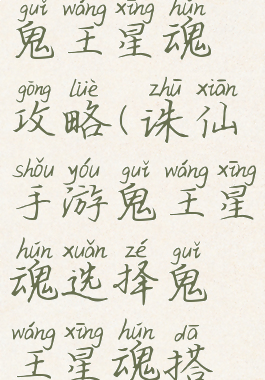 guǐ wáng xīng hún
鬼王星魂
gōng lüè zhū xiān
攻略(诛仙
shǒu yóu guǐ wáng xīng
手游鬼王星
hún xuǎn zé guǐ
魂选择鬼
wáng xīng hún dā
王星魂搭